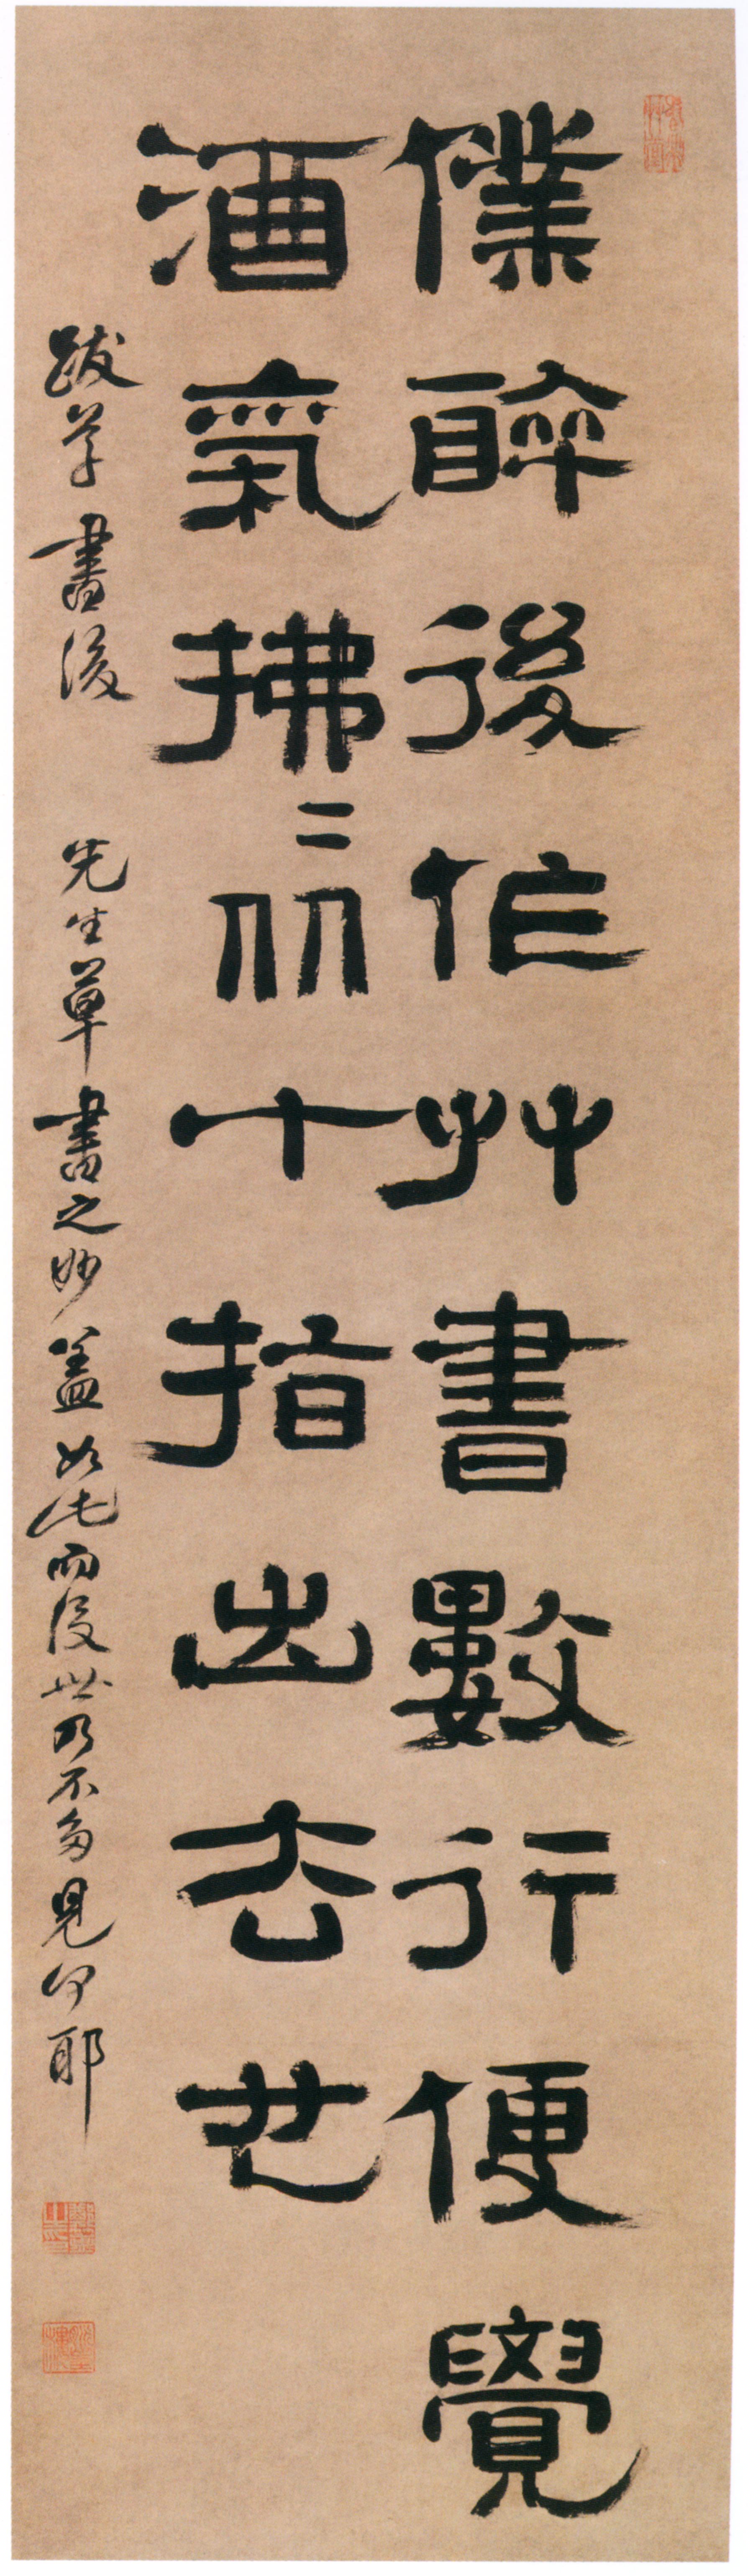 僕醉後作艸書數行便覺
酒氣拂〻从十指出去也
跋草書後　先生草書之妙蓋如此而後世乃不多見何耶